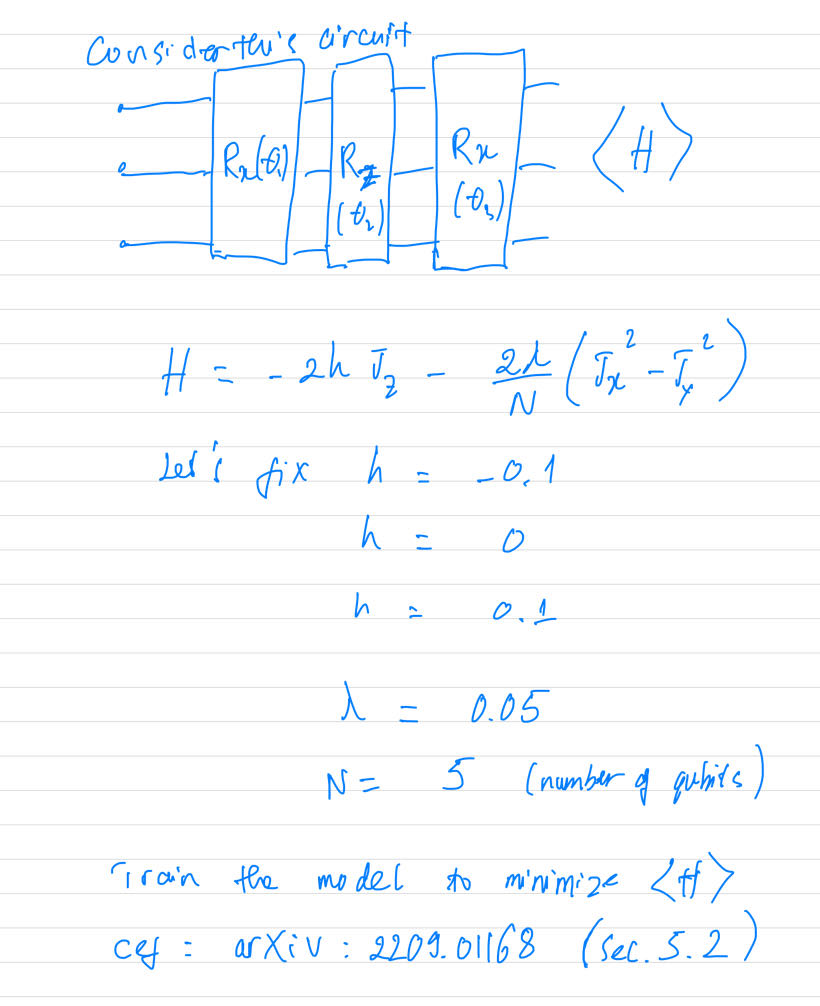 Consider this circuit
Rx(θ1)
Rz
(θ2)
Rx
(θ3)
⟨H⟩
H = - 2h Jz - 2λ/N (Jx² - Jy²)
Let's fix h = -0.1
h = 0
h = 0.1
λ = 0.05
N = 5 (number of qubits)
Train the model to minimize ⟨H⟩
cef : arXiv : 2209.01168 (sec. 5.2)